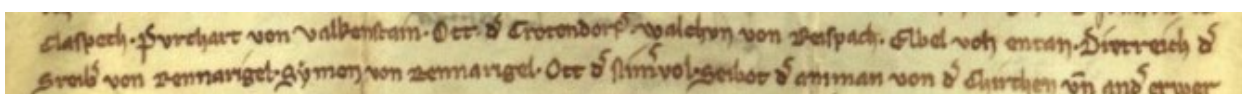 Claspech · Purchart von valkenstain · Ott · d̾ Crotendorf̾ · walchvn von Reispach · Elbel von entan · Dietreich d̾
Sreib̾ von Rennarigel · Sÿmon von Rennarigel · Ott d̾ stim̾vol · Seibot d̾ amman von d̾ Chirchen vn̄ and̾ erwer